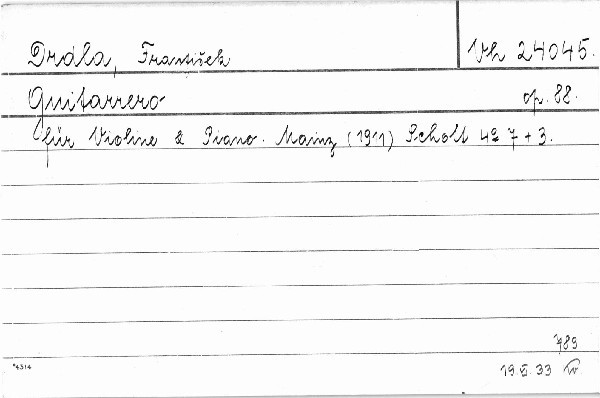 Drdla, František Vh 24045.
Guitarrero op. 88.
für Violine & Piano. Mainz (1911) Schott 4º 7 + 3.
789
*4314
19 33